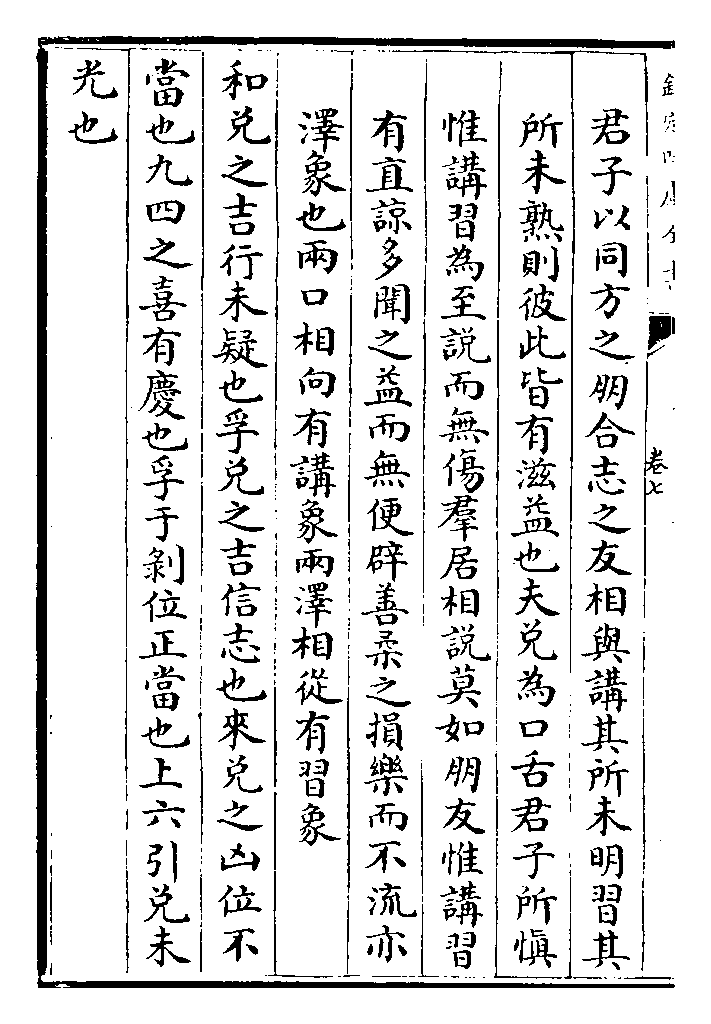 欽定四庫全書
卷七
君子以同方之朋合志之友相與講其所未明習其
所未熟則彼此皆有滋益也夫兑為口舌君子所慎
惟講習為至説而無傷羣居相説莫如朋友惟講習
有直諒多聞之益而無便辟善柔之損樂而不流亦
澤象也兩口相向有講象兩澤相從有習象
和兑之吉行未疑也孚兑之吉信志也來兑之凶位不
當也九四之喜有慶也孚于剝位正當也上六引兑未
光也